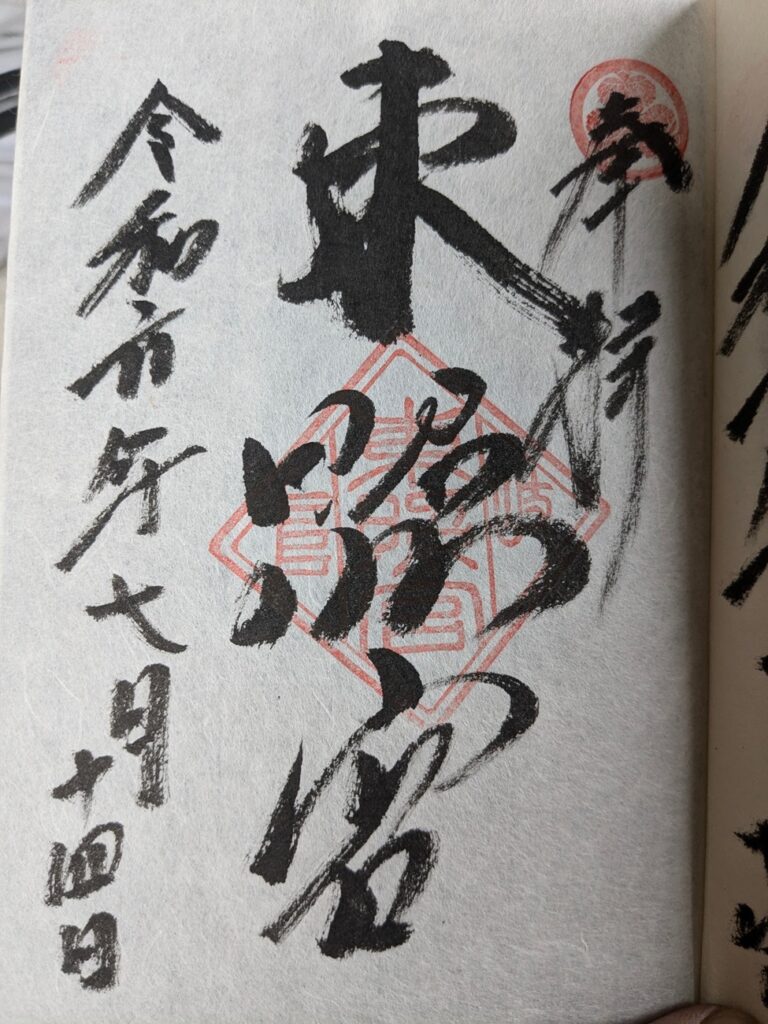 奉拝
東照宮
令和六年七月十四日